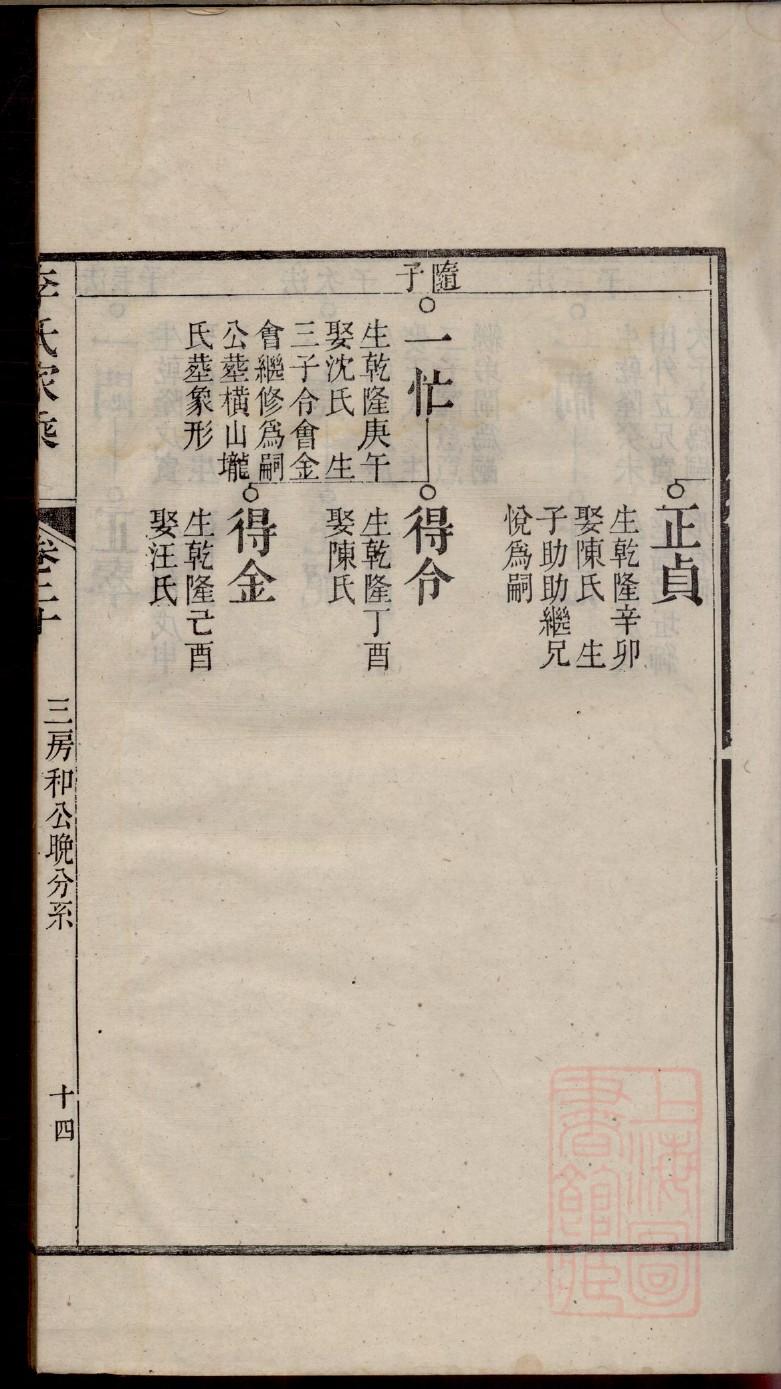 正貞
生乾隆辛卯
娶陳氏　生
子助助繼兄
悅爲嗣
隨子
一忙
生乾隆庚午
娶沈氏　生
三子令會金
會繼修爲嗣
公塟橫山壠
氏塟象形
得令
生乾隆丁酉
娶陳氏
得金
生乾隆己酉
娶汪氏
李氏家乘
卷二十
三房和公晚分系
十四
上海圖
書館藏